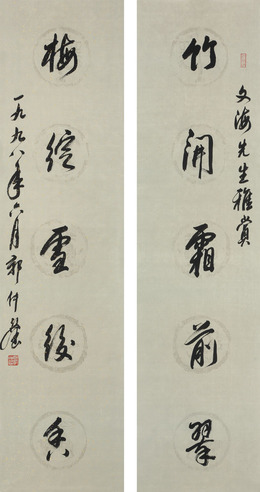 文海先生雅賞
竹開霜前翠
梅綻雪後香
一九九八年六月郭仲